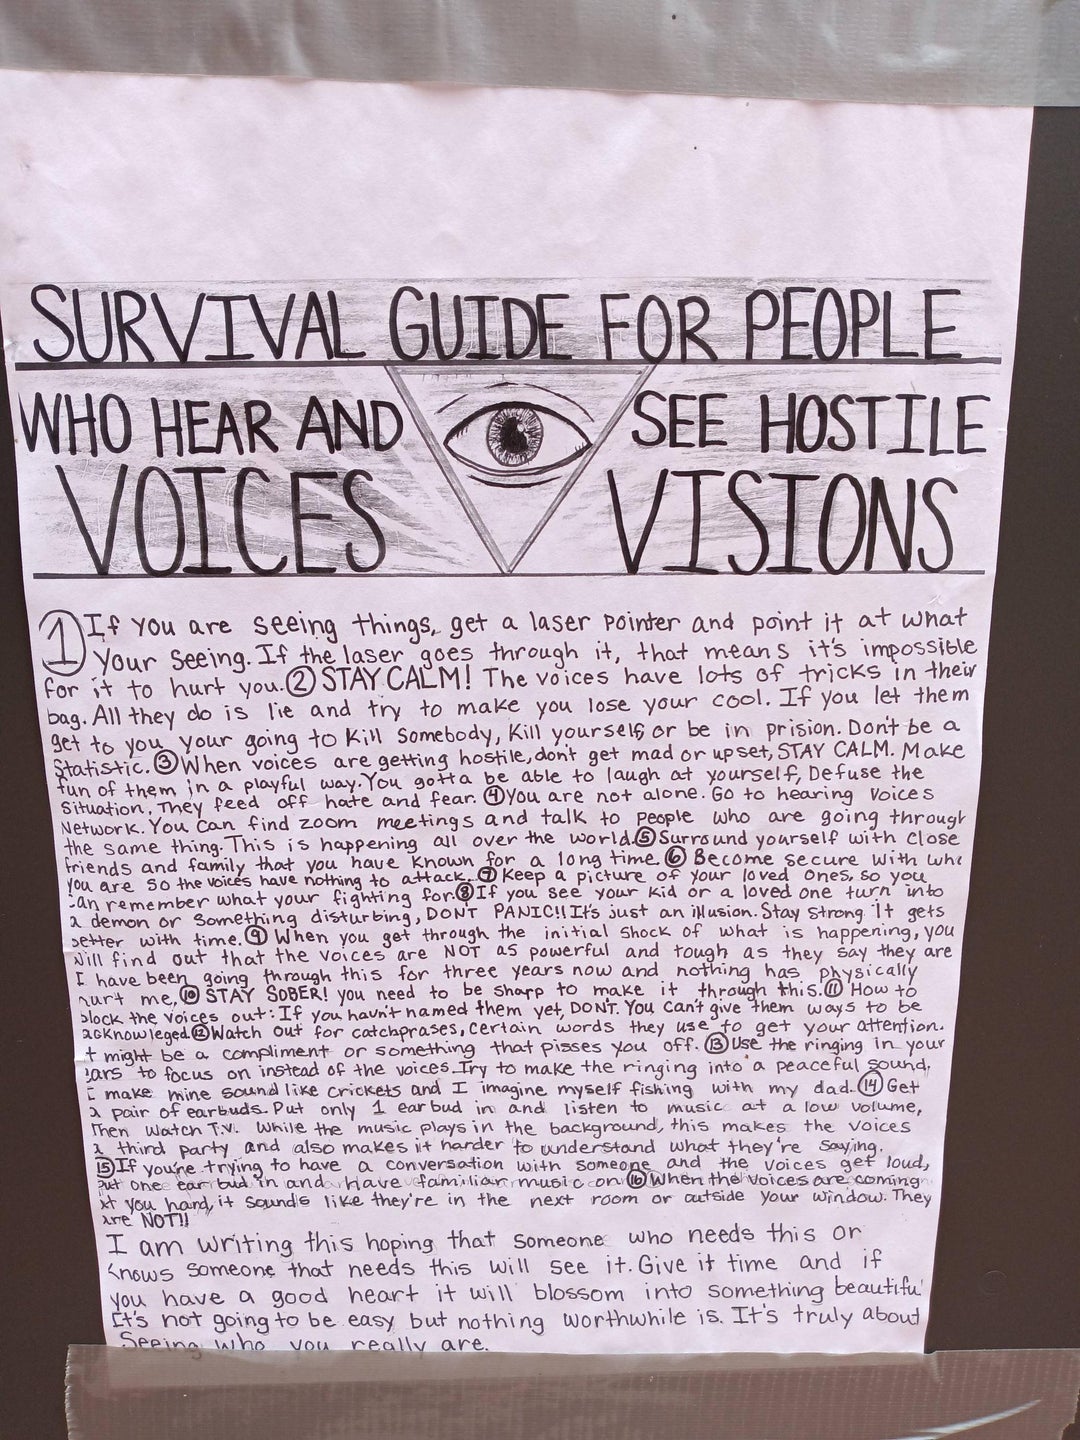 SURVIVAL GUIDE FOR PEOPLE
WHO HEAR AND SEE HOSTILE
VOICES VISIONS
1 If you are seeing things, get a laser pointer and point it at what
your seeing. If the laser goes through it, that means it's impossible
for it to hurt you. 2 STAY CALM! The voices have lots of tricks in their
bag. All they do is lie and try to make you lose your cool. If you let them
get to you your going to kill somebody, Kill yourself or be in prision. Don't be a
Statistic. 3 When voices are getting hostile, don't get mad or upset, STAY CALM. Make
fun of them in a playful way. You gotta be able to laugh at yourself, Defuse the
situation. They feed off hate and fear. 4 You are not alone. Go to hearing voices
Network. You can find zoom meetings and talk to people who are going through
the same thing. This is happening all over the world. 5 Surround yourself with close
friends and family that you have known for a long time. 6 Become secure with who
you are so the voices have nothing to attack. 7 Keep a picture of your loved ones, so you
can remember what your fighting for. 8 If you see your kid or a loved one turn into
a demon or something disturbing, DONT PANIC!! It's just an illusion. Stay strong. It gets
better with time. 9 When you get through the initial shock of what is happening, you
will find out that the voices are NOT as powerful and tough as they say they are
I have been going through this for three years now and nothing has physically
hurt me. 10 STAY SOBER! you need to be sharp to make it through this. 11 How to
block the voices out: If you havn't named them yet, DON'T. You can't give them ways to be
acknowleged. 12 Watch out for catchprases, certain words they use to get your attention.
It might be a compliment or something that pisses you off. 13 Use the ringing in your
ears to focus on instead of the voices. Try to make the ringing into a peaceful sound.
I make mine sound like crickets and I imagine myself fishing with my dad. 14 Get
a pair of earbuds. Put only 1 earbud in and listen to music at a low volume,
Then watch T.V. While the music plays in the background, this makes the voices
a third party and also makes it harder to understand what they're saying.
15 If you're trying to have a conversation with someone and the voices get loud,
put one ear bud in and have familiar music on. 16 When the voices are coming
at you hard, it sounds like they're in the next room or outside your window. They
are NOT!!
I am writing this hoping that someone who needs this or
knows someone that needs this will see it. Give it time and if
you have a good heart it will blossom into something beautiful
It's not going to be easy but nothing worthwhile is. It's truly about
Seeing who you really are.